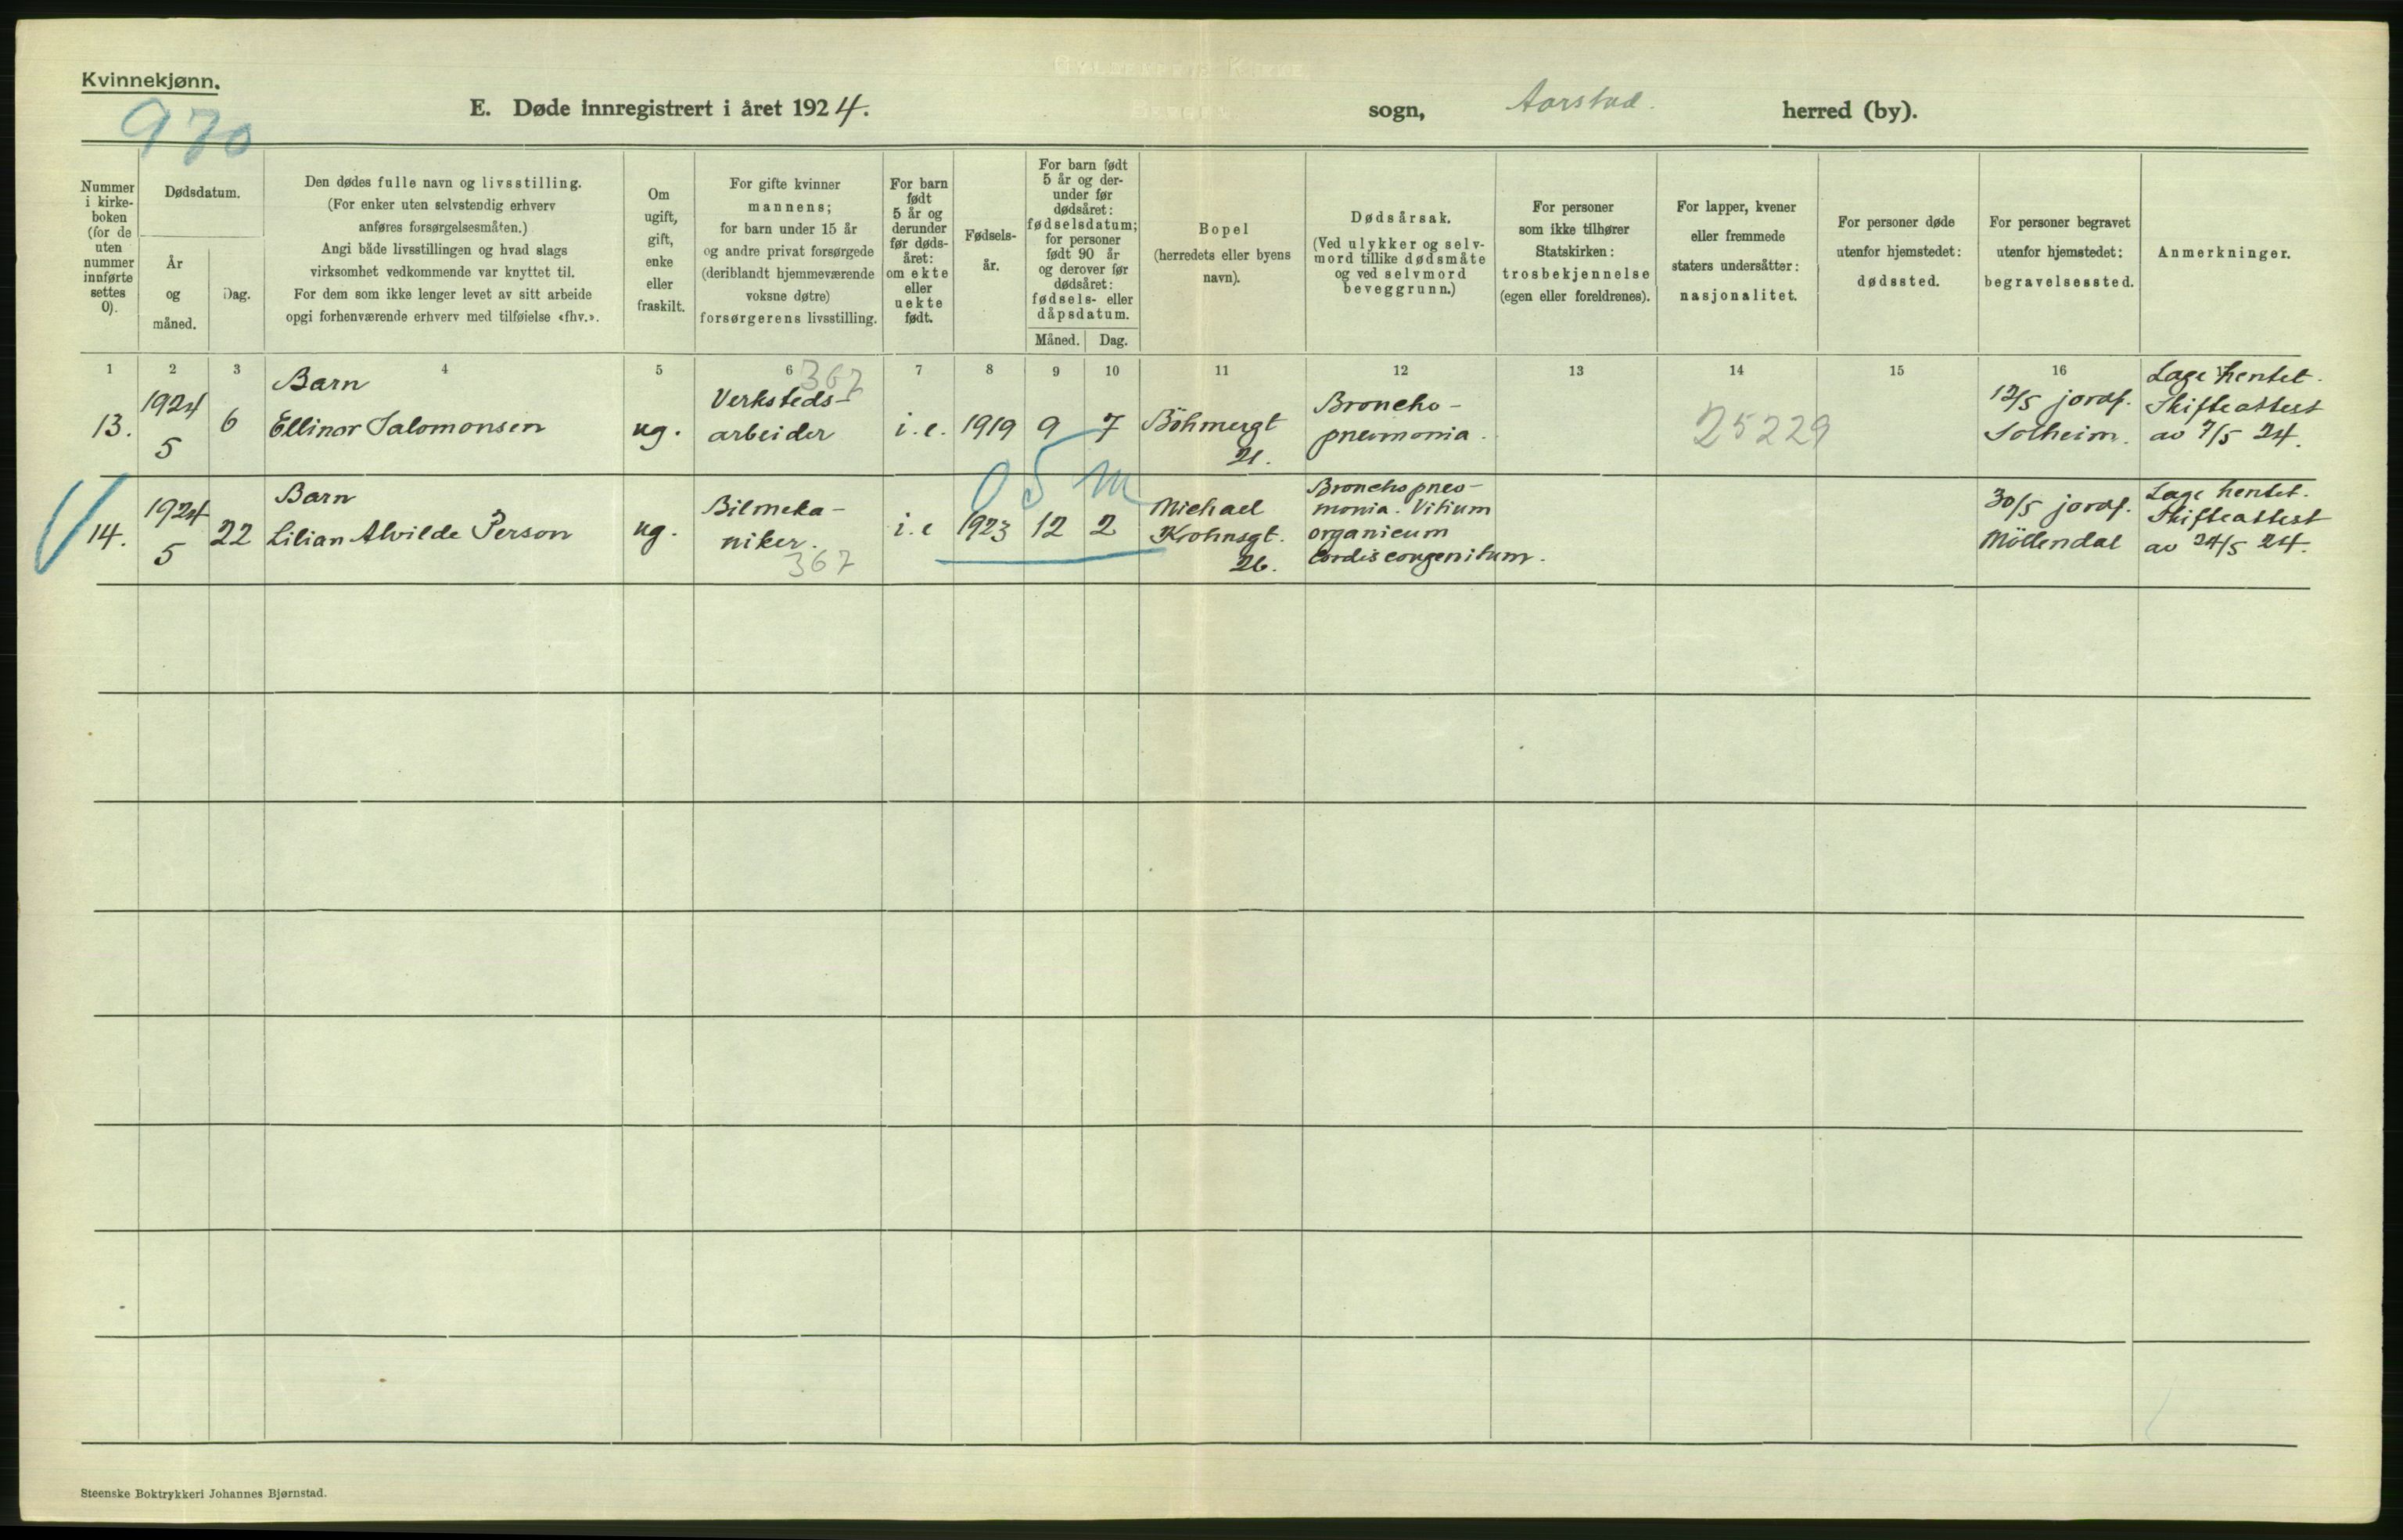 Kvinnekjønn.
970
E. Døde innregistrert i året 1924. sogn, Aarstad. herred (by).
Nummer i kirke-boken (for de uten nummer innførte settes 0).
Dødsdatum.
År og måned.
Dag.
Den dødes fulle navn og livsstilling.
(For enker uten selvstendig erhverv
anføres forsørgelsesmåten.)
Angi både livsstillingen og hvad slags
virksomhet vedkommende var knyttet til.
For dem som ikke lenger levet av sitt arbeide
opgi forhenværende erhverv med tilføielse «fhv.».
Om
ugift,
gift,
enke
eller
fraskilt.
For gifte kvinner
mannens;
for barn under 15 år
og andre privat forsørgede
(deriblandt hjemmeværende
voksne døtre)
forsørgerens livsstilling.
For barn
født
5 år og
derunder
før døds-
året:
om ekte
eller
uekte
født.
Fødsels-
år.
For barn født
5 år og der-
under før
dødsåret:
fødselsdatum;
for personer
født 90 år
og derover før
dødsåret:
fødsels- eller
dåpsdatum.
Måned. Dag.
Bopel
(herredets eller byens
navn).
Dødsårsak.
(Ved ulykker og selv-
mord tillike dødsmåte
og ved selvmord
beveggrunn.)
For personer
som ikke tilhører
Statskirken:
trosbekjennelse
(egen eller foreldrenes).
For lapper, kvener
eller fremmede
staters undersåtter:
nasjonalitet.
For personer døde
utenfor hjemstedet:
dødssted.
For personer begravet
utenfor hjemstedet:
begravelsessted.
Anmerkninger.
1 2 3 4 5 6 7 8 9 10 11 12 13 14 15 16
13.
1924
5
6
Barn
Ellinor Salomonsen
ug.
367
Verksteds-
arbeider
i. e.
1919
9
7
Böhmergt
21.
Broncho-
pneumonia.
25229
12/5 jordf.
Solheim.
Lage hentet.
Skifteattest
av 7/5 24.
14.
1924
5
22
Barn
Lilian Alvilde Person
ug.
Bilmeka-
niker.
367
i. e
1923
12
2
05 m
Michael
Krohnsgt.
26.
Bronchopneu-
monia. Vitium
organicum
cordis congenitum.
30/5 jordf.
Möllendal
Lage hentet.
Skifteattest
av 24/5 24.
Steenske Boktrykkeri Johannes Bjørnstad.